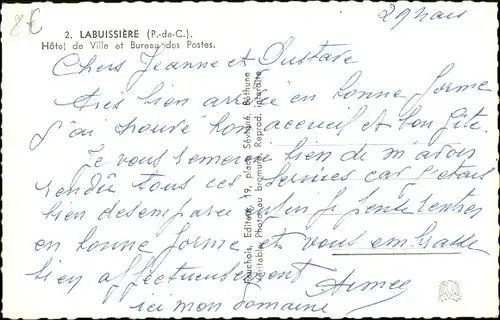 8€
29 mars
2. LABUISSIÈRE (P.-de-C.).
Hôtel de Ville et Bureau des Postes.
Chers Jeanne et Gustave
très bien arrivée en bonne forme
j'ai trouvé bon accueil et bon gîte.
Je vous remercie bien de m'avoir
rendu tous ces services car j'étais
bien desemparée enfin je suis rentrée
en bonne forme et vous embrasse
bien affectueusement
Aimée
ici mon domaine
Fauchois, Editeur, 19, place Sévigné, Béthune
Véritable Photo au bromure. Reprod. interdite